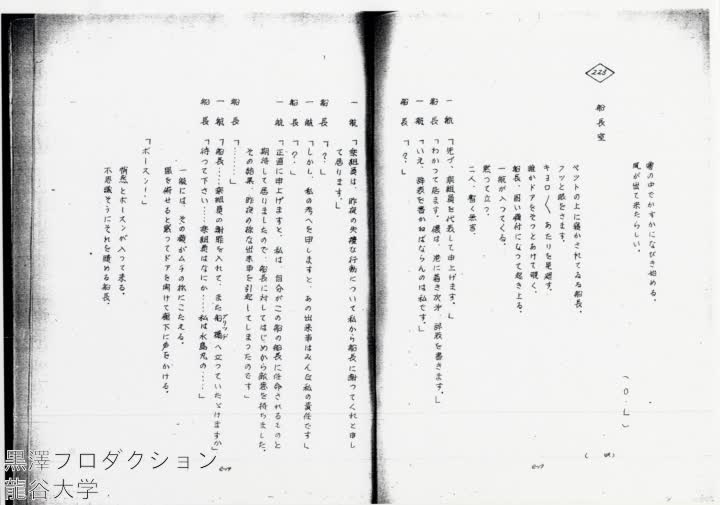 霧の中でかすかになびき始める。
風が出て来たらしい。
(O・L)
228
船長室
ベットの上に寝かされてゐる船長、
フッと眼をさます。
キョロ〱あたりを見廻す。
誰かドアをそつとあけて覗く。
船長、固い顔付になつて起き上る。
一航が入つてくる。
黙って立つ。
二人、暫く無言。
一航「先づ、乗組員を代表して申上げます。」
船長「わかつて居ます。僕は、港に着き次第、辞表を書きます。」
一航「いえ、辞表を書かねばならんのは私です。」
船長「？」
一航「乗組員は、昨夜の失禮な行動について私から船長に謝つてくれと申して居ります。」
船長「？」
一航「しかし、私の考へを申しますと、あの出来事はみんな私の責任です」
船長「？」
一航「正直に申上げますと、私は、自分がこの船の船長に任命されるものと
期待して居りましたので、船長に対してはじめから敵意を持ちました。
その結果、昨夜の様な出来事を引起してしまつたのです」
船長「………」
一航「船長……乗組員の謝罪を入れて、また船橋へ立つていたゞけますか」
ブリッヂ
船長「待つて下さい……乗組員はなにか……私は水島丸の……」
一航には、その声がムチの様にこたえる。
眼を伏せると黙つてドアを開けて廊下に声をかける。
「ボースン！」
悄然とボースンが入つて来る。
不思議そうにそれを眺める船長。
黒澤プロダクション
龍谷大学